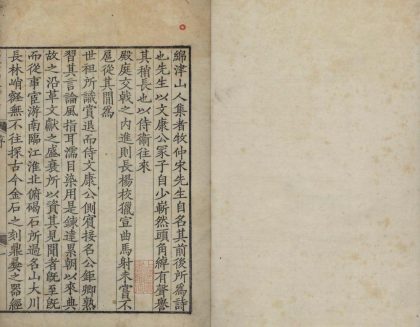 綿津山人集者牧仲宋先生自名其前後所為詩
也先生以文康公冢子自少嶄然頭角綽有聲譽
其稍長也以侍衛往來
殿庭交戟之內進則長楊校獵宣曲馬射未嘗不
扈從其間為
世祖所識賞退而侍文康公側賓接名公鉅卿熟
習其言論風指耳濡目染用是鍊達朝以來典
故之沿革文獻之盛衰所以資其見聞者旣至旣
而從事宦游南臨江淮北俯碣石所過名山大川
長林峭壑無不往探古今金石之刻鼎彝之器經